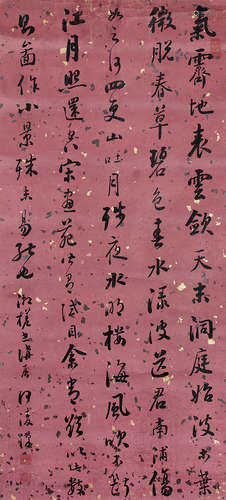 氣霽地表雲斂天末洞庭始波木葉
微脫春草碧色春水淥波送君南浦傷
如之何四更山吐月殘夜水明樓海風吹不斷
江月照還空宋畫苑皆試目余嘗欲以此數
景作小景殊未易能也